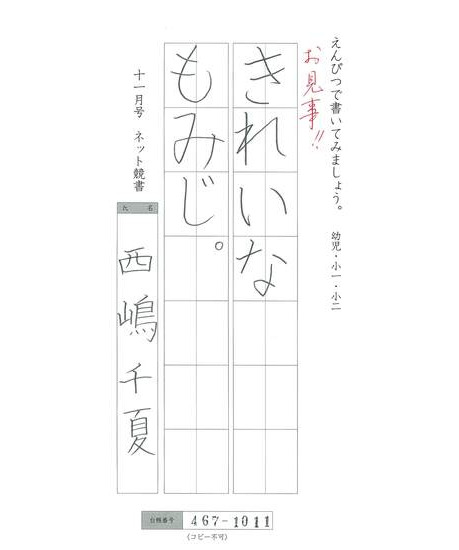 えんぴつで書いてみましょう。 幼児・小一・小二
お見事!!
きれいな
もみじ。
十一月号 ネット競書
氏名
西嶋千夏
台帳番号 467-1011
(コピー不可)